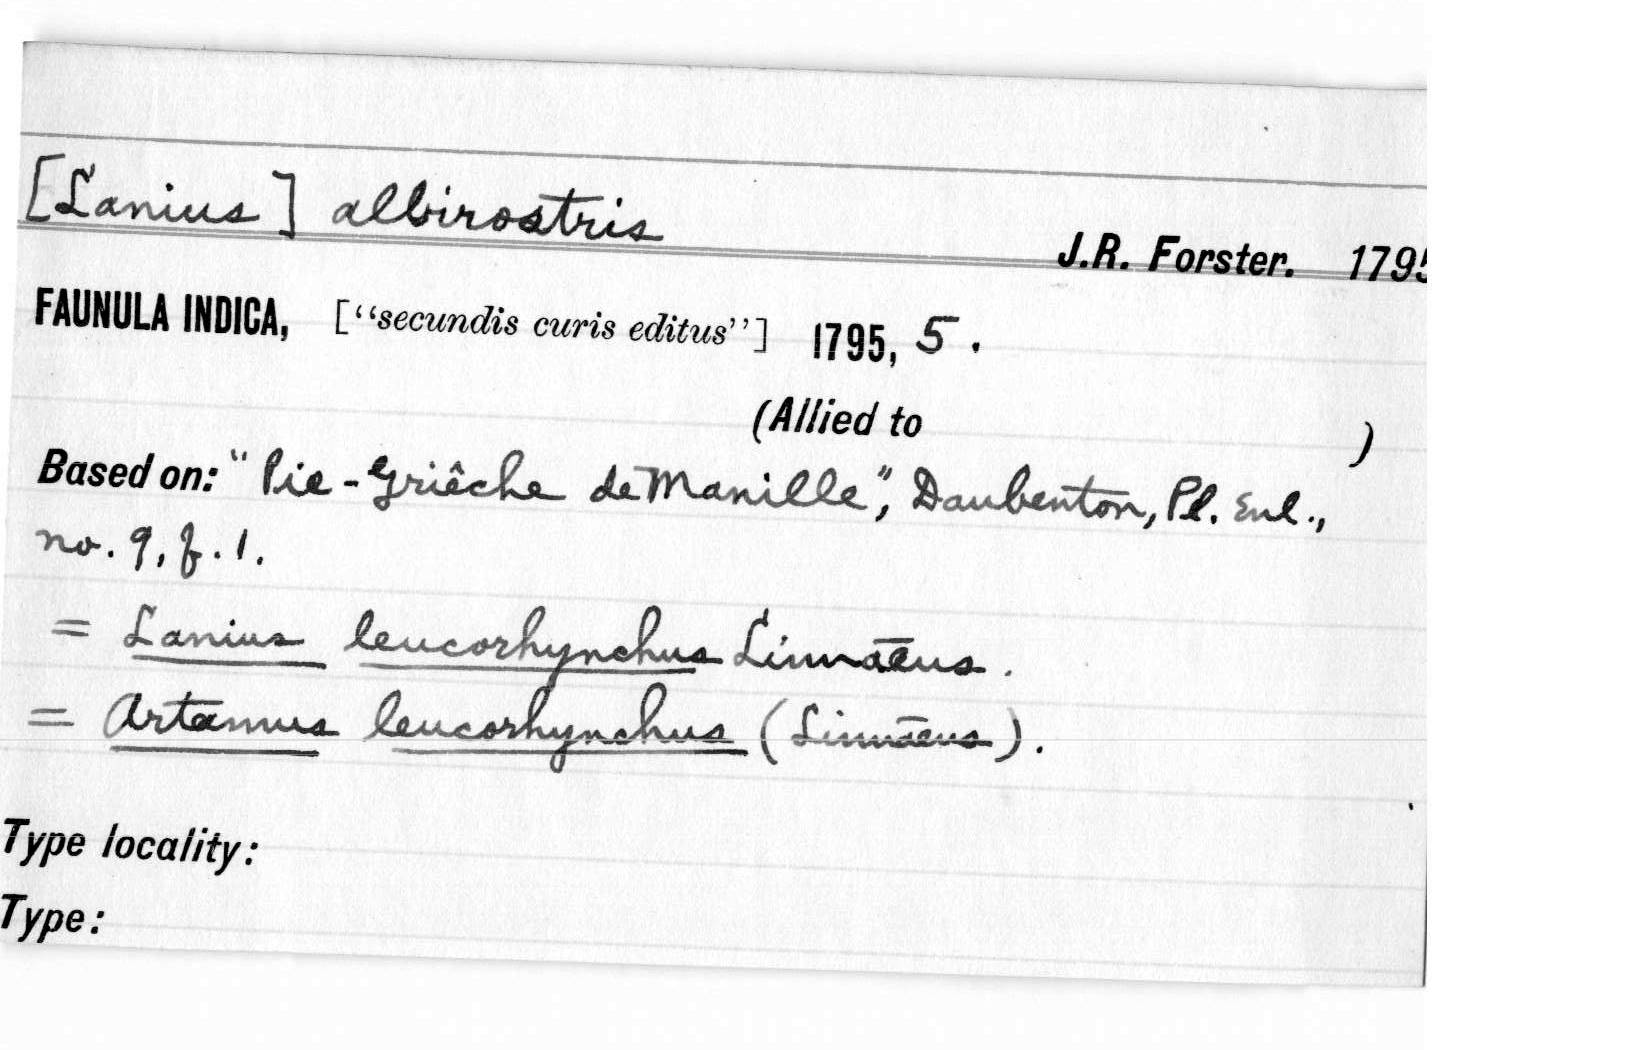 [Lanius] albirostris
J.R. Forster. 1795
FAUNULA INDICA, [“secundis curis editus”] 1795, 5.
(Allied to )
Based on: “Pie-Grièche de Manille”, Daubenton, Pl. Enl.,
no. 9, f. 1.
= Lanius leucorhynchus Linnaeus.
= Artamus leucorhynchus (Linnaeus).
Type locality:
Type: